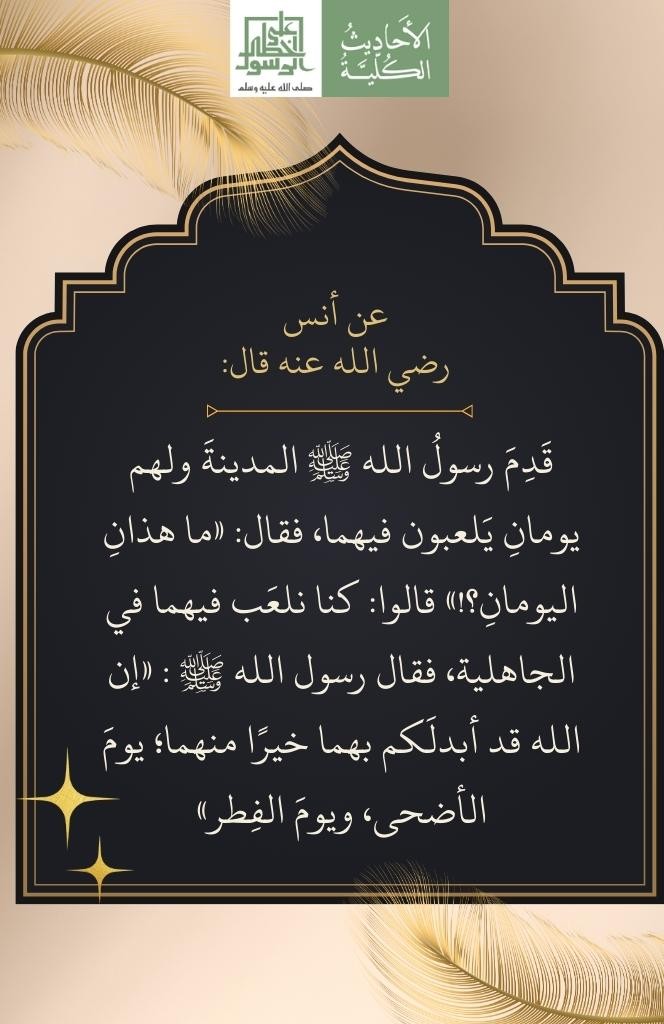 الأَحَادِيثُ
الكُلِّيَّةُ
على
خطى
الرسول
صلى الله عليه وسلم
عن أنس
رضي الله عنه قال:
قَدِمَ رسولُ الله ﷺ المدينةَ ولهم
يومانِ يَلعبون فيهما، فقال: «ما هذانِ
اليومانِ؟!» قالوا: كنا نلعَب فيهما في
الجاهلية، فقال رسول الله ﷺ : «إن
الله قد أبدلَكم بهما خيرًا منهما؛ يومَ
الأضحى، ويومَ الفِطر»